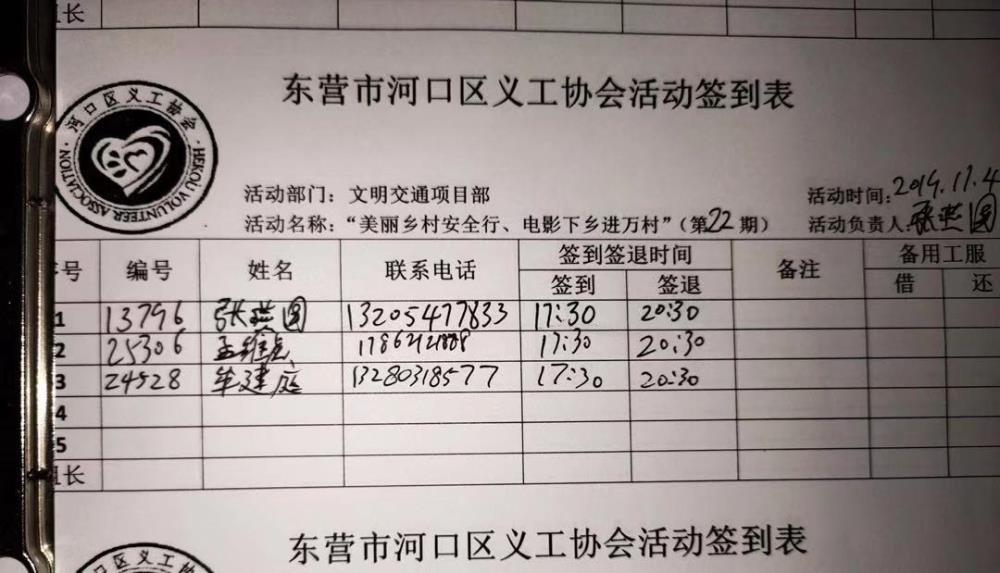 组长
东营市河口区义工协会活动签到表
河口区义工协会
HEKOU VOLUNTEER ASSOCIATION
活动部门：文明交通项目部
活动时间：2019.11.4
活动名称：“美丽乡村安全行、电影下乡进万村”（第22期）
活动负责人：张燕圆
序号 编号 姓名 联系电话 签到签退时间 备注 备用工服
签到 签退 借 还
1 13796 张燕圆 13205477833 17:30 20:30
2 25306 孟维 17:30 20:30
3 24528 牟建庭 13280318577 17:30 20:30
4
5
组长
东营市河口区义工协会活动签到表
河口区义工协会